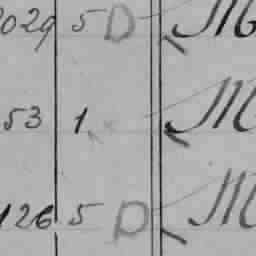 2029 5 D M
53 1. M
126 5 D M